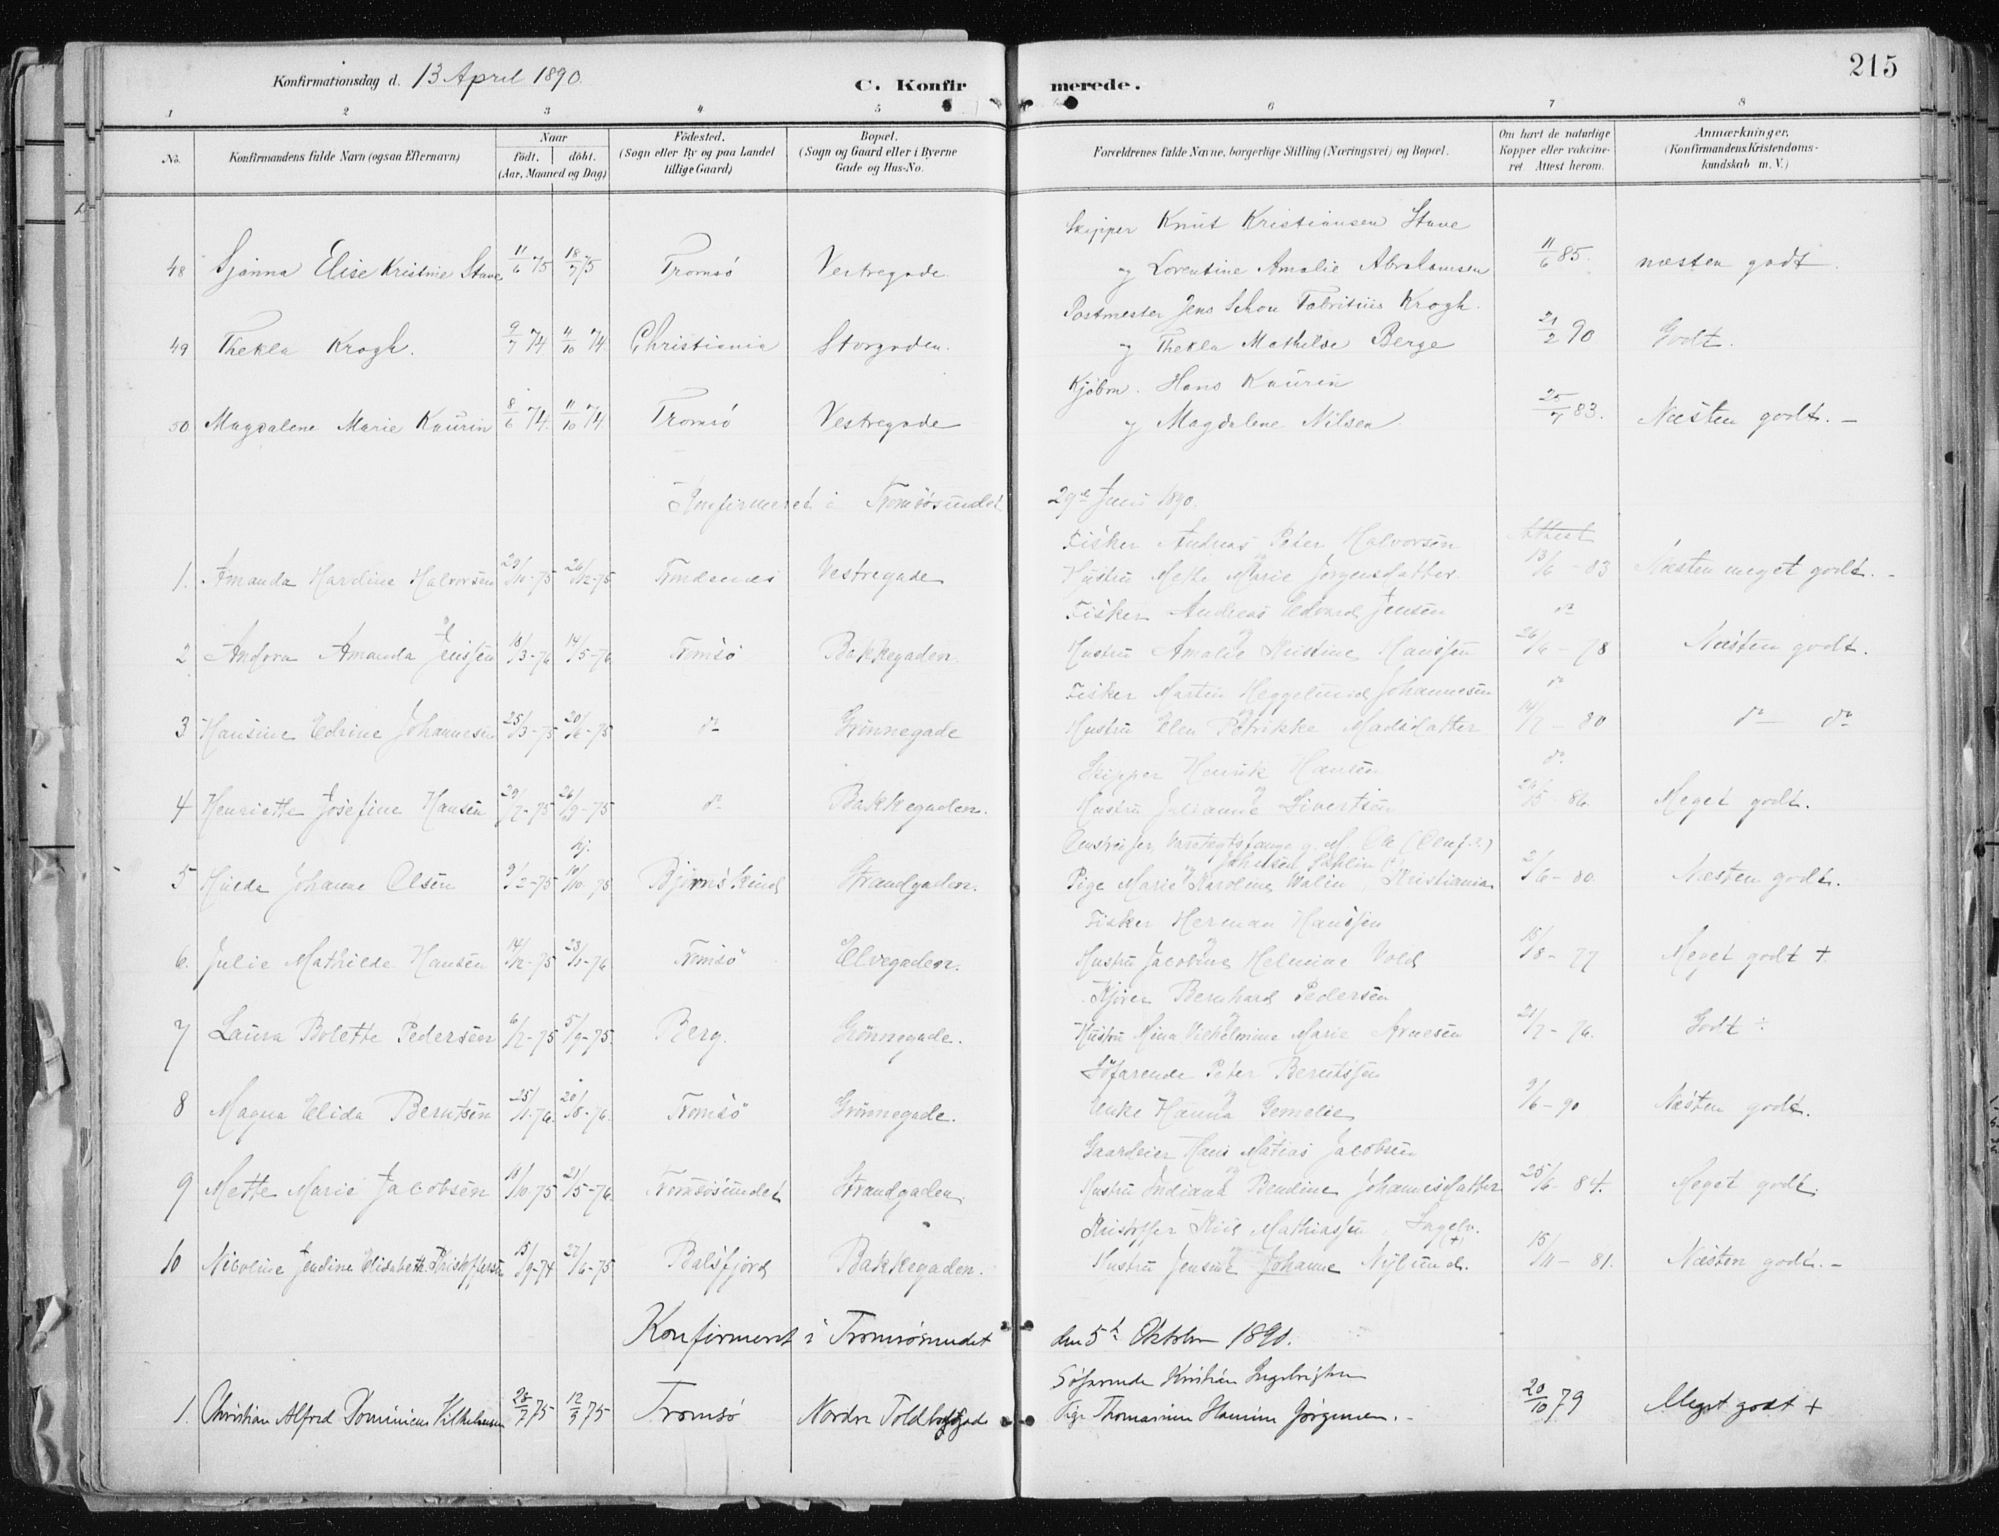 215
Konfirmationsdag d. 13 April 1890.
C. Konfirmerede.
1 2 3 4 5 6 7 8
No.
Konfirmandens fulde Navn (ogsaa Efternavn)
Naar
födt. döbt.
(Aar, Maaned og Dag)
Födested.
(Sogn eller By og paa Landet
tillige Gaard)
Bopæl.
(Sogn og Gaard eller i Byerne
Gade og Hus-No.
Forældrenes fulde Navne, borgerlige Stilling (Næringsvei) og Bopæl.
Om havt de naturlige
Kopper eller vakcine-
ret. Attest herom.
Anmærkninger.
(Konfirmandens Kristendoms-
kundskab m. V.)
Skipper Knut Kristiansen Stave
48 Sjanna Elise Kristine Stave 11/6 75 18/7 75 Tromsö Vestregade og Lorentine Amalie Abrahamsen 11/6 85. næsten godt.
Postmester Jens Schou Fabritius Krogh.
49 Thekla Krogh. 9/7 74 4/10 74 Christiania Storgaden. og Thekla Mathilde Berge 21/2 90 Godt.
Kjöbm. Hans Kaurin
50 Magdalene Marie Kaurin 8/6 74. 11/10 74. Tromsö Vestregade og Magdalene Nilsen 83. Næsten godt. -
Konfirmeret i Tromsösundet 29de Juni 1890.
Fisker Andreas Peter Halvorsen Attest
1. Amanda Hardine Halvorsen 29/10-75 26/12-75 Trondenes Vestregade og Hustru Mette Marie Jörgensdatter. 13/6 - 83 Næsten meget godt. -
Fisker Andreas Edvard Jensen do
2 Andora Amanda Jenssen 18/3-76 14/5-76 Tromsö Bakkegaden. og Hustru Amalie Kristine Hanssen 26/6 - 78 Næsten godt.
Fisker Martin Heggelund Johannesen do
3 Hansine Edrine Johannesen 25/3-75 20/6-75 do Grönnegade og Hustru Elen Petrikke Madsdatter 14/7 - 80 do do
Skipper Henrik Hansen do
4 Henriette Josefine Hansen 29/7-75 26/9-75 do Bakkegaden. og Hustru Julianne Sivertsen 86 Meget godt.
5 Hulda Johanne Olsen 9/2-75 hj. 10/10-75 Bjarköskind Strandgaden. Pige Marie Karoline Walin, Kristiania 2/6 - 80. Næsten godt.
Fisker Herman Hanssen
6. Julie Mathilde Hansen 14/12-75 23/1-76 Tromsö Elvegaden. og Hustru Jacobine Helmine Vold 15/8 - 77 Meget godt +
Kjörer Bernhard Pedersen
7 Laura Bolette Pedersen 6/7-75 5/9-75. Berg. Grönnegade. og Hustru Mina Vilhelmine Marie Arnesen 21/7 - 76. Godt ÷
Söfarende Peter Berntssen
8 Magna Elida Berntsen 25/11-76. 20/8-76. Tromsö Grönnegade. og Enke Hanna Gemelie 9/6 - 90 Næsten godt.
Gaardeier Hans Matias Jacobsen
9 Mette Marie Jacobsen 18/10-75 21/5-76 Tromsösundet Strandgaden. og Hustru Indiana Bendine Johannesdatter 25/6 - 84. Meget godt.
Kristoffer Mathiassen
10 Nicoline Jendine Elisabeth Kristoffersen 15/9-74 27/6-75 Balsfjord Bakkegaden. og Hustru Jensine Johanne Nylund. 15/11 - 81. Næsten godt. -
Konfirmeret i Tromsösundet den 5te Oktober 1890.
Söfarende Kristian Ingebrigtsen
1. Christian Alfred Dominicus Vilhelmsen 28/7 75 12/9 75 Tromsö Nordre Toldbodgade Pige Thomasine Hanine Jörgensen. - 20/10 79 Meget godt +